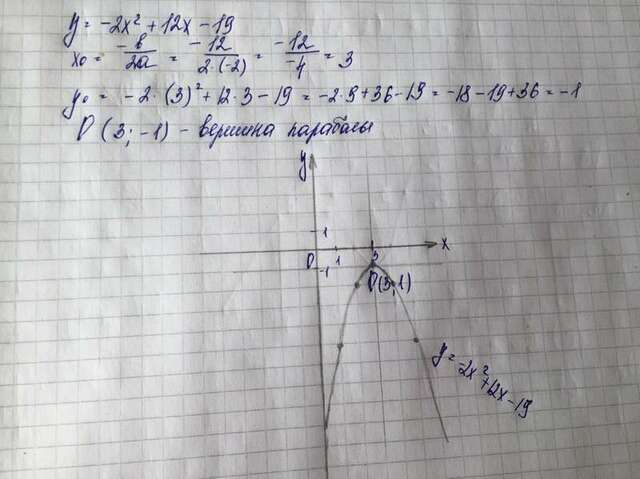 y = -2x² + 12x - 19
x₀ = -b/2a = -12/2·(-2) = -12/-4 = 3
y₀ = -2·(3)² + 12·3 - 19 = -2·9 + 36 - 19 = -18 - 19 + 36 = -1
D (3; -1) - вершина парабалы
y
1
x
0
1
3
-1
D(3;1)
y = -2x² + 12x - 19